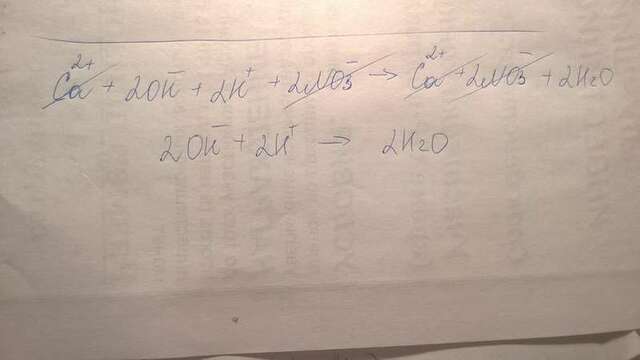 Ca²⁺ + 2OH⁻ + 2H⁺ + 2NO₃⁻ → Ca²⁺ + 2NO₃⁻ + 2H₂O
2OH⁻ + 2H⁺ → 2H₂O